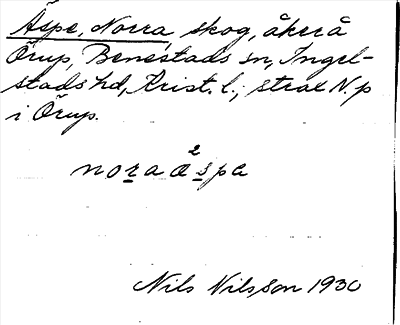 Äspe, Norra, skog, åker å
Örup, Benestads sn, Ingel-
stads hd, Krist. l.; strax N. p
i Örup.
nora ä²spa
Nils Nilsson 1930